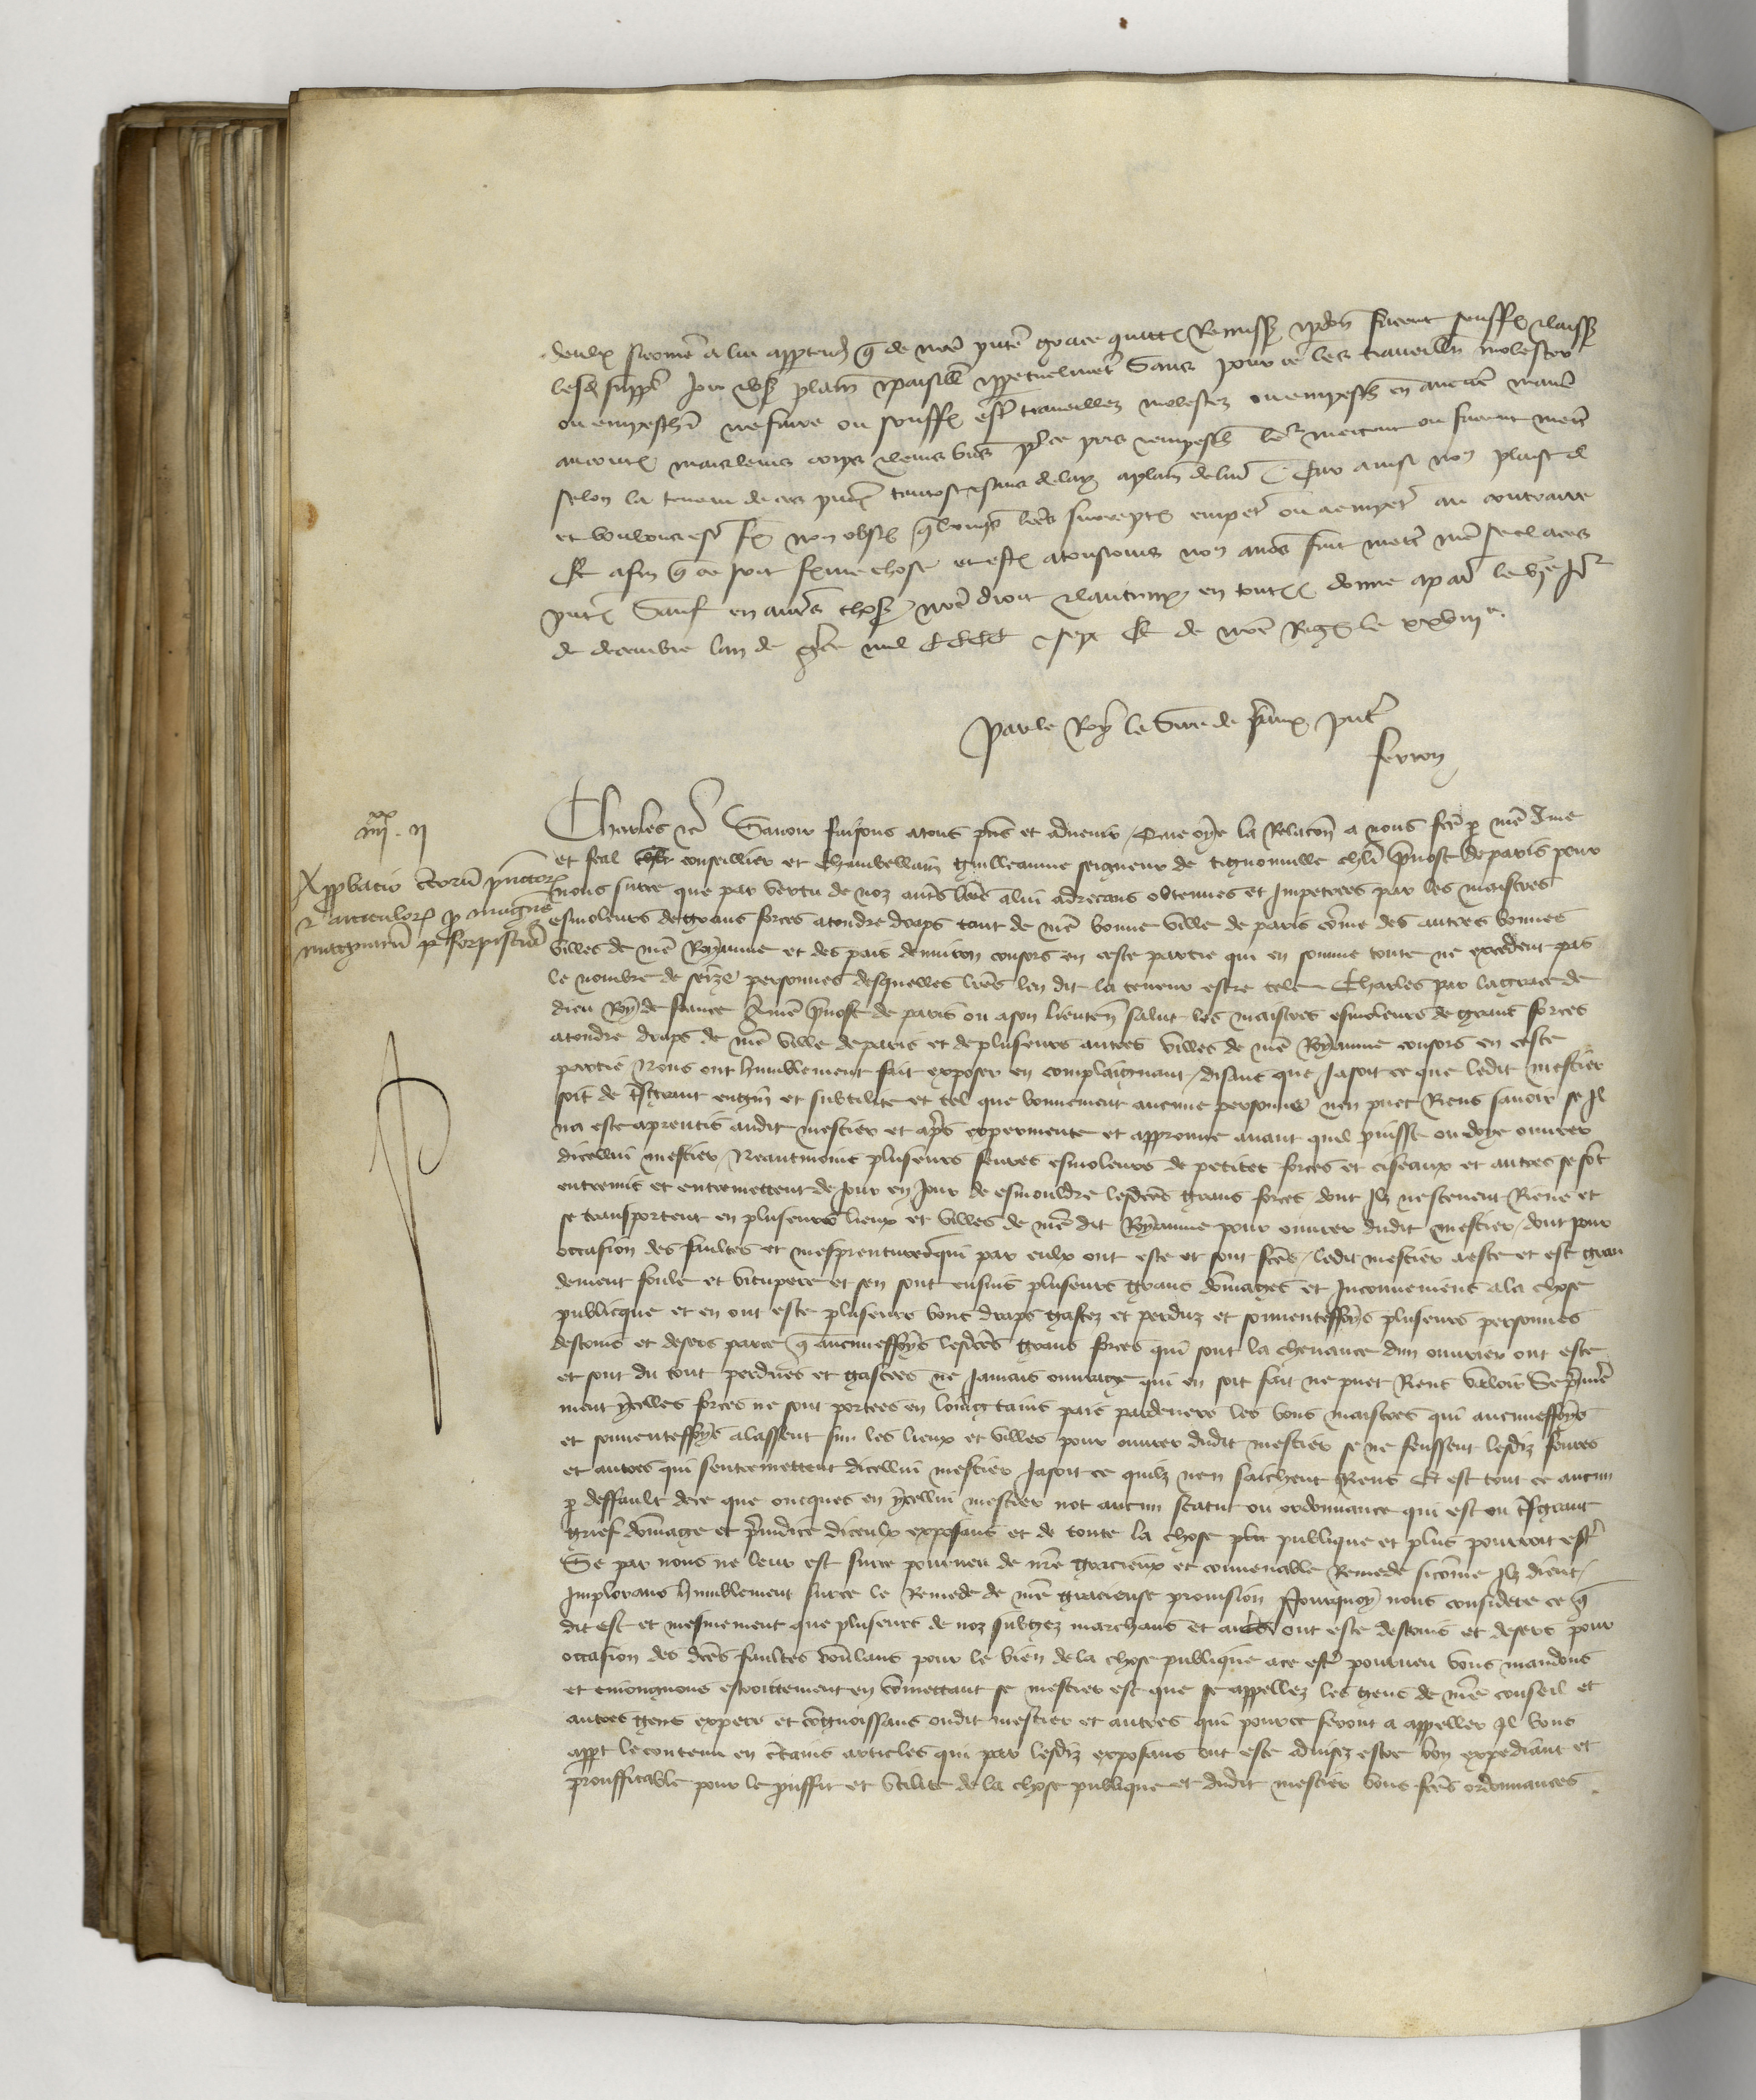 deulx si comme a lui appartendra que de nostre presente grace quittance Remission et pardon facent seuffrent et laissent
lesdiz supplians joir et user plainement et paisiblement et perpetuelment Sans pour ce les travaillier molester
ou empeschier ne faire ou souffrir estre travaillez molestez ou empeschiez en aucune maniere
au contraire mais leurs corps et leurs biens pour ce pris ou empeschiez leur mettent ou facent mettre
selon la teneur de ces presentes tantost et sans delay a plain delivre Car ainsi nous plaist il
et voulons estre fait non obstant quelxconques lettres surreptices empetrees ou a empetrer au contraire
Et afin que ce soit ferme chose et estable a tousjours nous avons fait mettre nostre seel a ces
presentes Sauf en autres choses nostre droit et lautruy en toutes donne a paris le vie jour
de decembre lan de grace mil CCCC et sept Et de nostre Regne le xxviiie.
Par le Roy le Sire de preaux present
ferron
iiiixx. ii
Approbacio certorum punctorum
et articulorum pro
Charles etc Savoir faisons a tous presens et advenir / Que oye la Relacion a nous faicte par nostre ame
et feal conseillier et Chambellain guilleaume seigneur de tignonville chevalier prevost de paris pour
nous sur ce que par vertu de noz autres lettres a lui adrecans obtenues et Impetrees par les maistres
esmoleurs de grans forces a tondre draps tant de nostre bonne ville de paris comme des autres bonnes
villes de nostre Royaume et des pais denviron consors en ceste partie qui en somme toute ne excedent pas
le nombre de seize personnes desquelles lettres len dit la teneur estre tele Charles par la grace de
dieu Roy de france A nostre prevost de paris ou a son lieutenant salut les maistres esmoleurs de grans forces
a tondre draps de nostre ville de paris et de pluseurs autres villes de nostre Royaume consors en ceste
partie Nous ont humblement fait exposer en complaignant / disant que Jasoit ce que ledit mestier
soit de tresgrant engin et subtilite et tel que bonnement aucune personne nen puet Riens savoir se Il
na este aprentis audit mestier et apres expermente et apprenne avant quil puisse ou doye ouvrer
dicellui mestier / Neantmoins pluseurs fevres esmoleurs de petites forces et ciseaux et autres se sont
entremis et entremettent de Jour en Jour de esmouldre lesdictes grans forces dont Ilz ne scevent Riens et
se transportent en pluseurs lieux et villes de nostre dit Royaume pour ouvrer dudit mestier / dont pour
occasion des faultes et mesprentures qui par eulx ont este et sont faictes / ledit mestier a este et est gran
dement foule et vitupere et sen sont ensuis pluseurs grans dommages et Inconveniens a la chose
publicque et en ont este pluseurs bons draps gastez et perduz et souventeffoys pluseurs personnes
destruis et desers parce que aucuneffoys lesdictes grans forces qui sont la chevance dun ouvrier ont este
et sont du tout perdues et gastees ne Jamais ouvrage qui en soit fait ne puet Riens valoir Se premiere
ment ycelles forces ne sont portees en loingtains pais pardevers les bons maistres qui aucuneffoys
et souventeffoys alassent sur les lieux et villes pour ouvrer dudit mestier se ne feussent lesdiz fevres
et autres qui sentremettent dicellui mestier Jasoit ce quilz nen saichent Riens Et est tout ce avenu
par deffault de ce que oncques en ycellui mestier not aucun statut ou ordonnance qui est ou tresgrant
grief dommage et prejudice diceulx exposans et de toute la chose publique et plus pourroit estre
Se par nous ne leur est sur ce pourveu de nostre gracieux et convenable Remede si comme Ilz dient /
Implorans humblement sur ce le Remede de nostre gracieuse provision Pourquoy nous considere ce que
dit est et mesmement que pluseurs de noz subgez marchans et autres ont este destruis et desers pour
occasion des dictes faultes voulans pour le bien de la chose publique a ce estre pourveu vous mandons
et enjoingnons estroittement en commettant se mestier est que se appellez les gens de nostre conseil et
autres gens expers et congnoissans oudit mestier et autres qui pour ce seront a appeller Il vous
appert le contenu en certains articles qui par lesdiz exposans ont este advisez estre bon expediant et
prouffitable pour le prouffit et utilite de la chose publique et dudit mestier vous faictes ordonnances